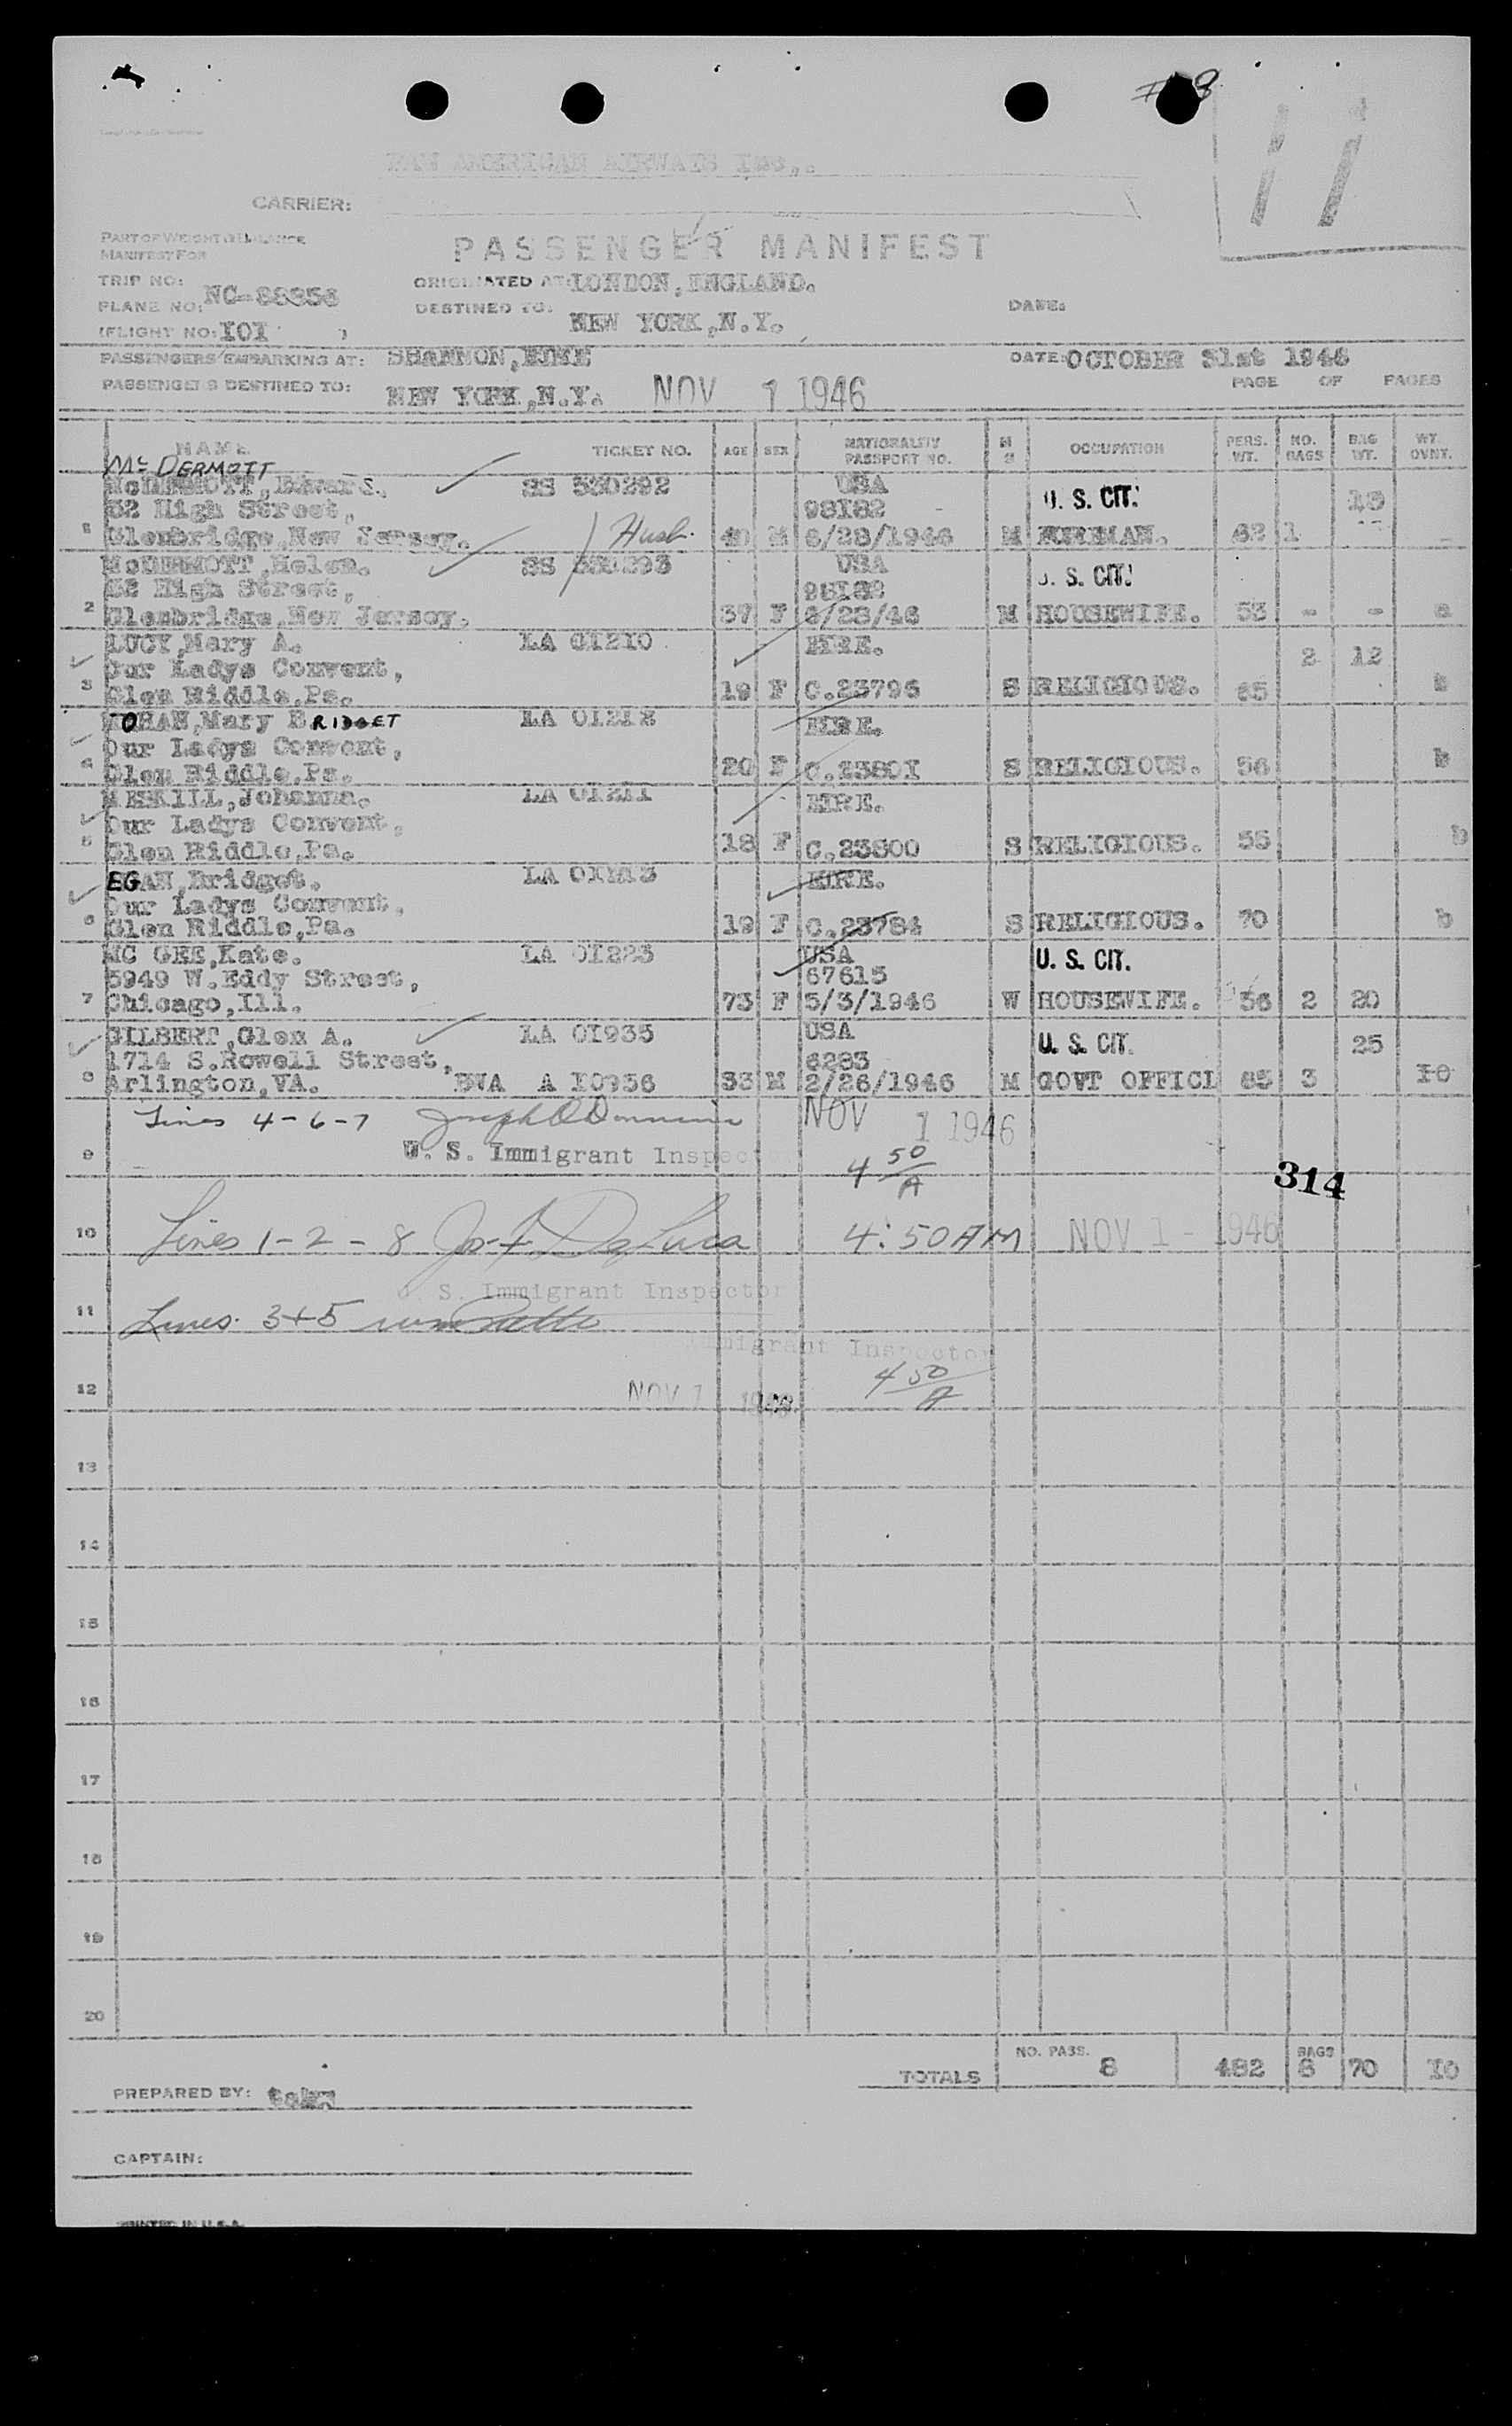 # 8
11
PAN AMERICAN AIRWAYS Inc.
CARRIER:
PART OF WEIGHT & BALANCE
MANIFEST FOR
PASSENGER MANIFEST
TRIP NO:
ORIGINATED AT: LONDON, ENGLAND.
PLANE NO: NC-88856
DESTINED TO: NEW YORK, N.Y.
DATE:
(FLIGHT NO: 101 )
PASSENGERS EMBARKING AT: SHANNON, EIRE
DATE: OCTOBER 31st 1946
PASSENGERS DESTINED TO: NEW YORK, N.Y. NOV 1 1946
PAGE OF PAGES
NAME TICKET NO. AGE SEX NATIONALITY PASSPORT NO. M S OCCUPATION PERS. WT. NO. BAGS BAG WT. WT. OVNT.
McDERMOTT
McDERMOTT, Edward. SS 530292 USA U. S. CIT. 13
32 High Street, 98182
1 Glenbridge, New Jersey. Husb. 40 M 6/28/1946 M FOREMAN. 62 1 -
McDERMOTT, Helen. SS 530293 USA U. S. CIT.
32 High Street, 98182
2 Glenbridge, New Jersey. 37 F 6/28/46 M HOUSEWIFE. 53 - -
LUCY, Mary A. LA 01210 EIRE. 2 12
Our Ladys Convent,
3 Glen Riddle, Pa. 19 F C.23796 S RELIGIOUS. 65
HORAN, Mary BRIDGET LA 01212 EIRE.
Our Ladys Convent,
4 Glen Riddle, Pa. 20 F C.23801 S RELIGIOUS. 56 b
MESKILL, Johanna. LA 01211 EIRE.
Our Ladys Convent,
5 Glen Riddle, Pa. 18 F C.23800 S RELIGIOUS. 55 b
EGAN, Bridget. LA 01213 EIRE.
Our Ladys Convent,
6 Glen Riddle, Pa. 19 F C.23784 S RELIGIOUS. 70 b
MC GEE, Kate. LA 01223 USA U. S. CIT.
5949 W. Eddy Street, 67615
7 Chicago, Ill. 73 F 5/3/1946 W HOUSEWIFE. 56 2 20
GILBERT, Glen A. LA 01935 USA U. S. CIT. 25
1714 S. Rowell Street, 6283
8 Arlington, VA. BWA A 10956 33 M 2/26/1946 M GOVT OFFICL 65 3 10
Lines 4-6-7 NOV 1 1946
9 U. S. Immigrant Inspector 4 50/A
314
10 Lines 1-2-8 Jos F DeLuca 4:50 AM NOV 1 - 1946
U. S. Immigrant Inspector
11 Lines 3+5
Immigrant Inspector
12 NOV 1 1946 4 50/A
13
14
15
16
17
18
19
20
TOTALS NO. PASS. 8 482 BAGS 8 70 10
PREPARED BY:
CAPTAIN:
PRINTED IN U.S.A.